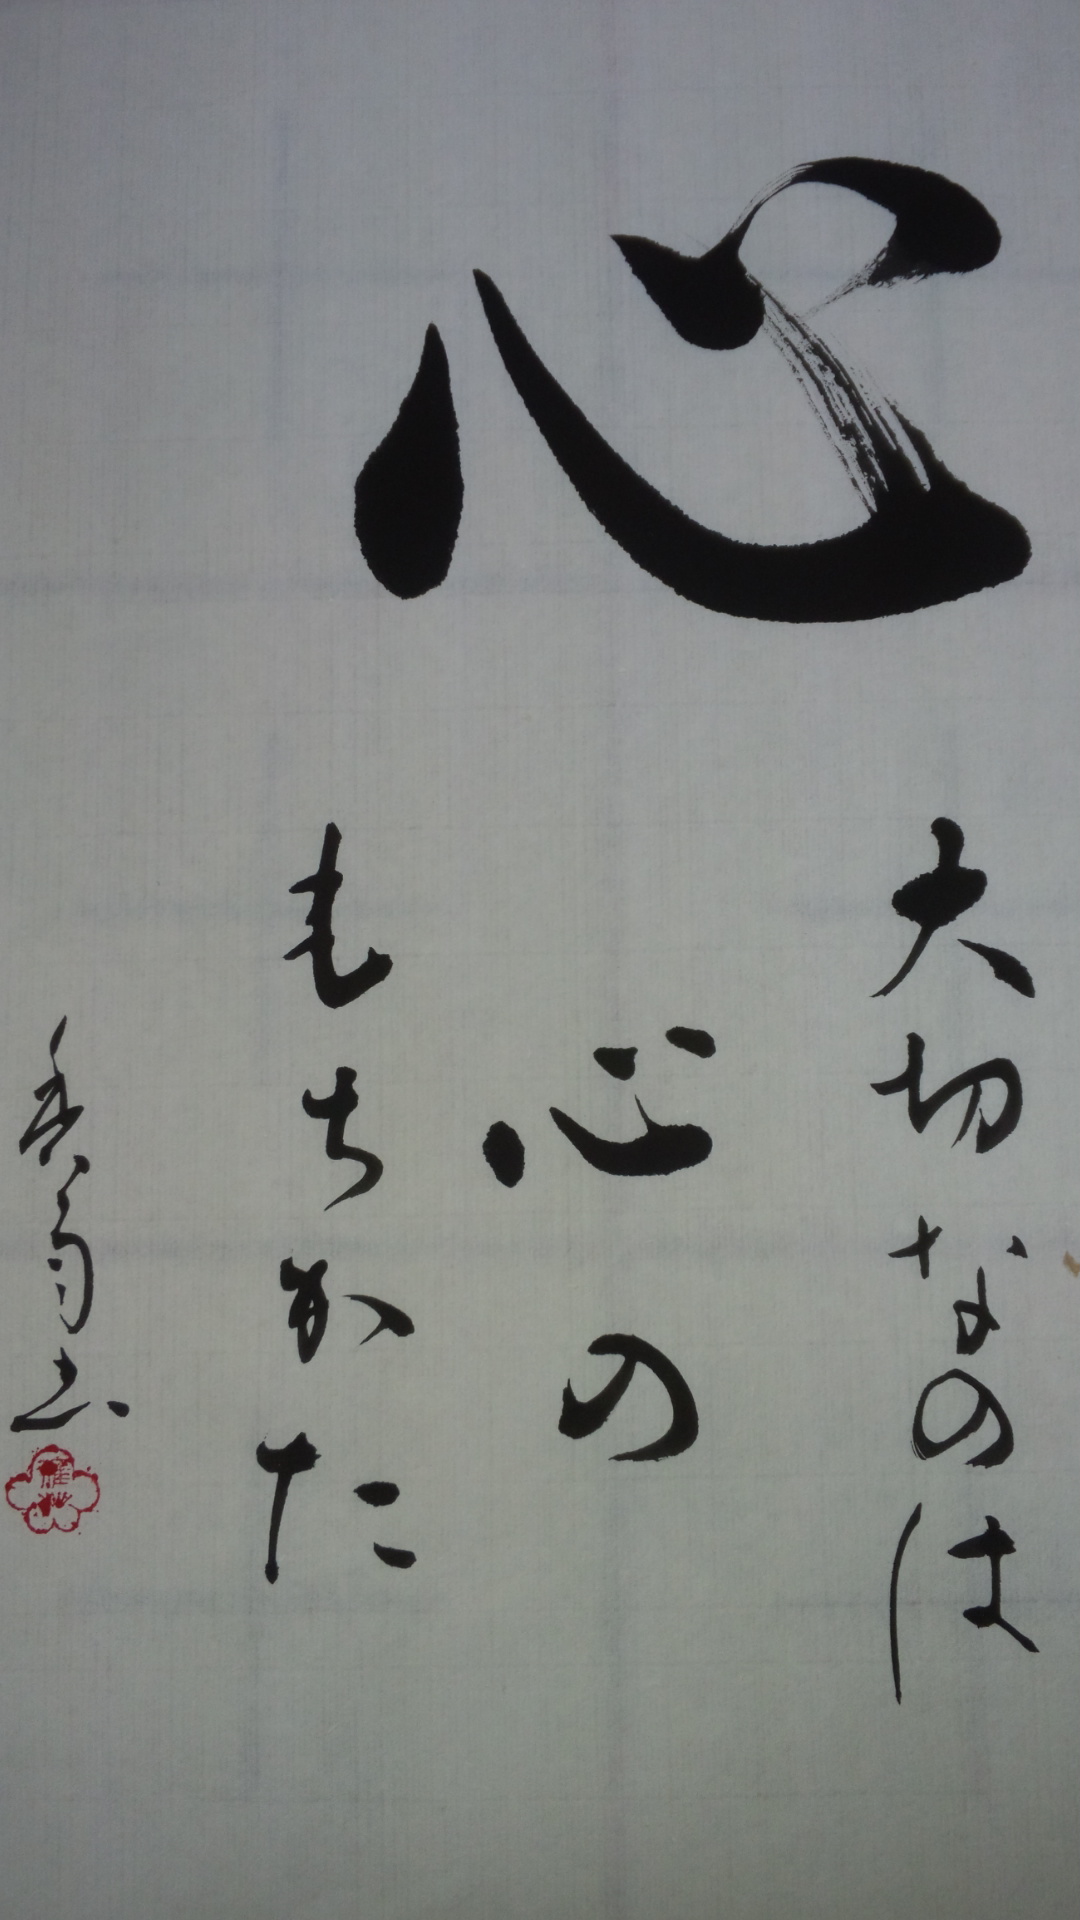 心
大切なのは
心の
もちかた